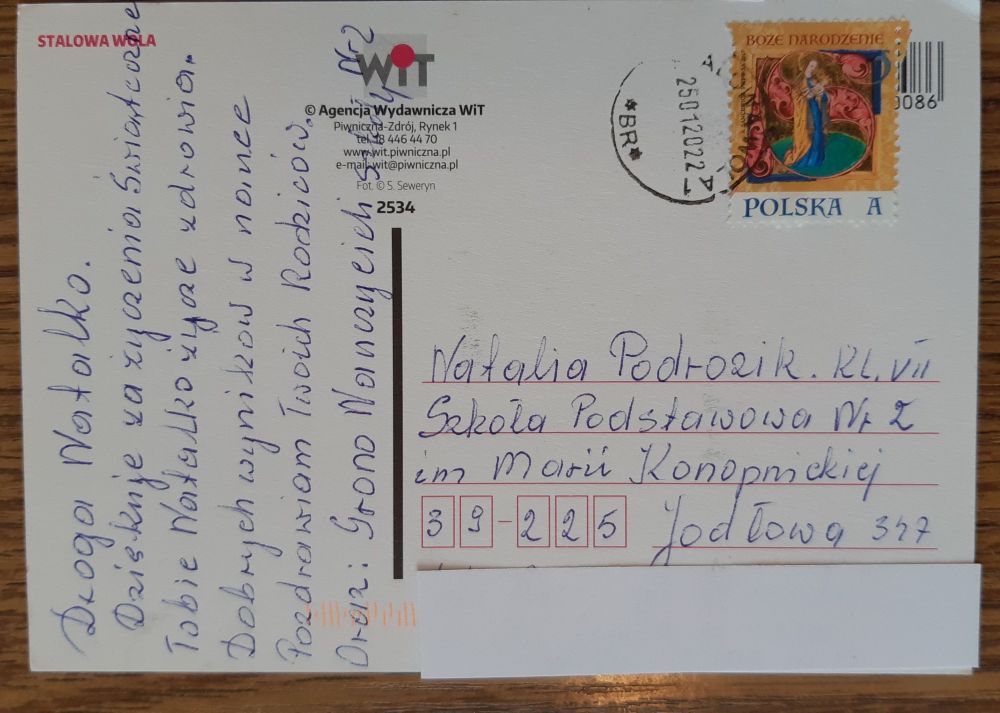 STALOWA WOLA
WiT
© Agencja Wydawnicza WiT
Piwniczna-Zdrój, Rynek 1
tel. 18 446 44 70
www.wit.piwniczna.pl
e-mail: wit@piwniczna.pl
Fot. © S. Seweryn
2534
Droga Natalko.
Dziękuję za życzenia Świąteczne
Tobie Natalko życzę zdrowia.
Dobrych wyników w nauce
Pozdrawiam Twoich Rodziców.
Oraz: Grono Nauczycieli Szkoły Nr 2
BOŻE NARODZENIE
POLSKA A
0086
*BR*
25012022
Natalia Podrozik. Kl. VII
Szkoła Podstawowa Nr 2
im Marii Konopnickiej
39-225 Jodłowa 347